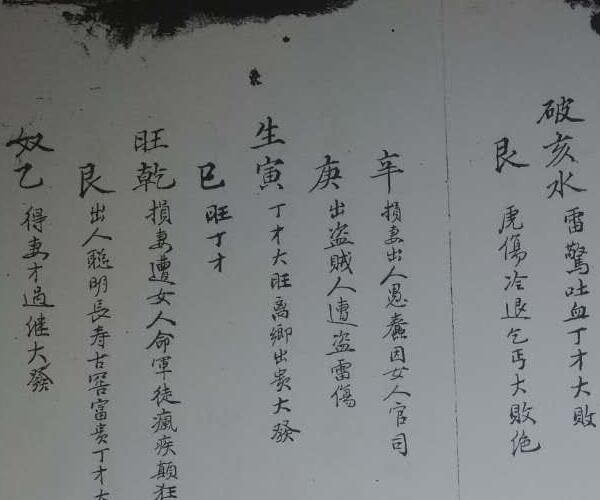 破亥水 雷驚吐血丁才大敗
艮 虎傷冷退乞丐大敗绝
辛 損妻出人愚蠢因女人官司
庚 出盜賊人遭盜雷傷
生寅 丁才大旺离鄉出贵大發
巳 旺丁才
旺乾 損妻遭女人命軍徒瘋疾顛狂
艮 出人聪明長寿古窖富贵丁才大
奴乙 得妻才過继大發